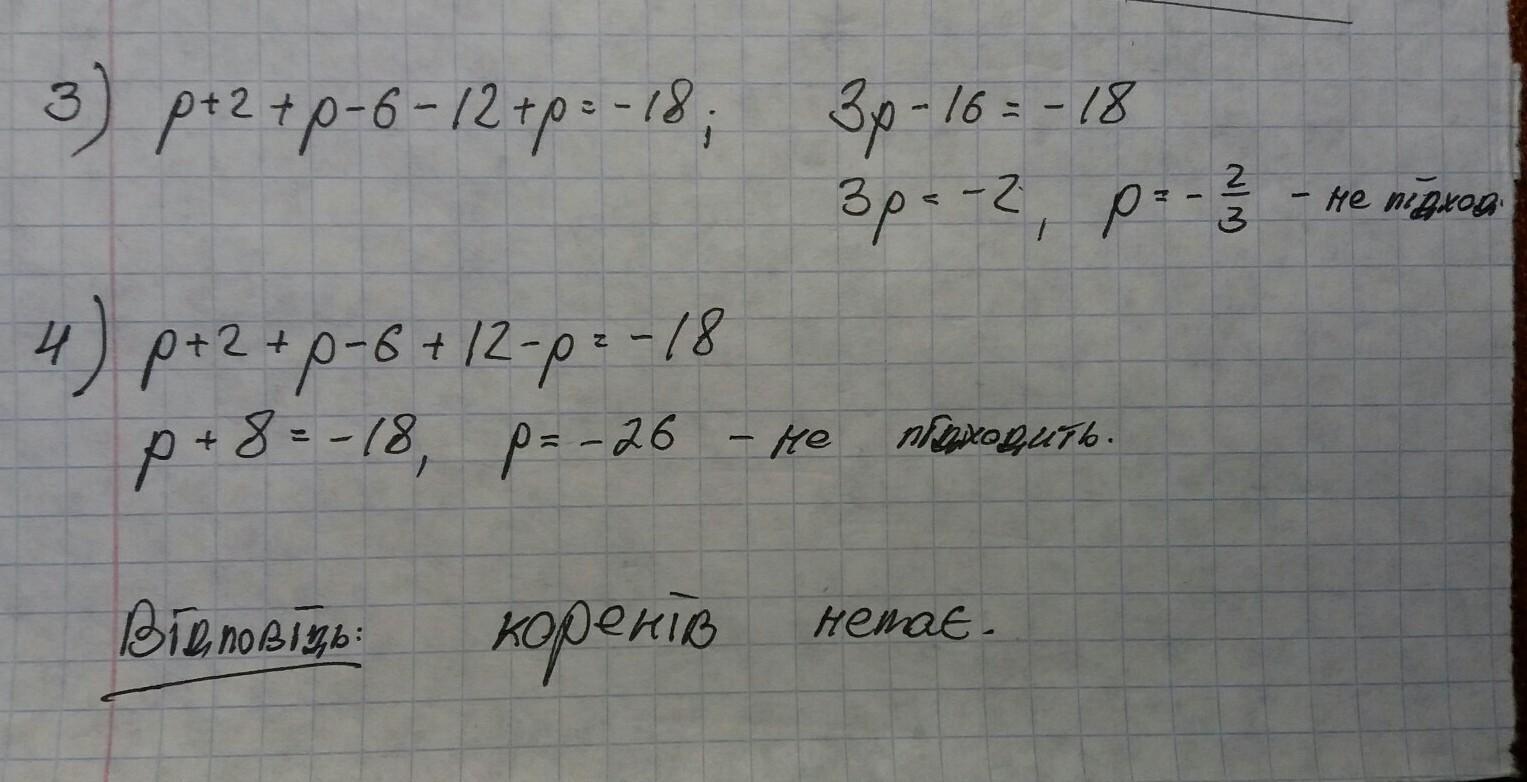 3) p+2+p-6-12+p=-18; 3p-16=-18
3p=-2, p=-2/3 - не підход.
4) p+2+p-6+12-p=-18
p+8=-18, p=-26 - не підходить.
Відповідь: коренів немає.